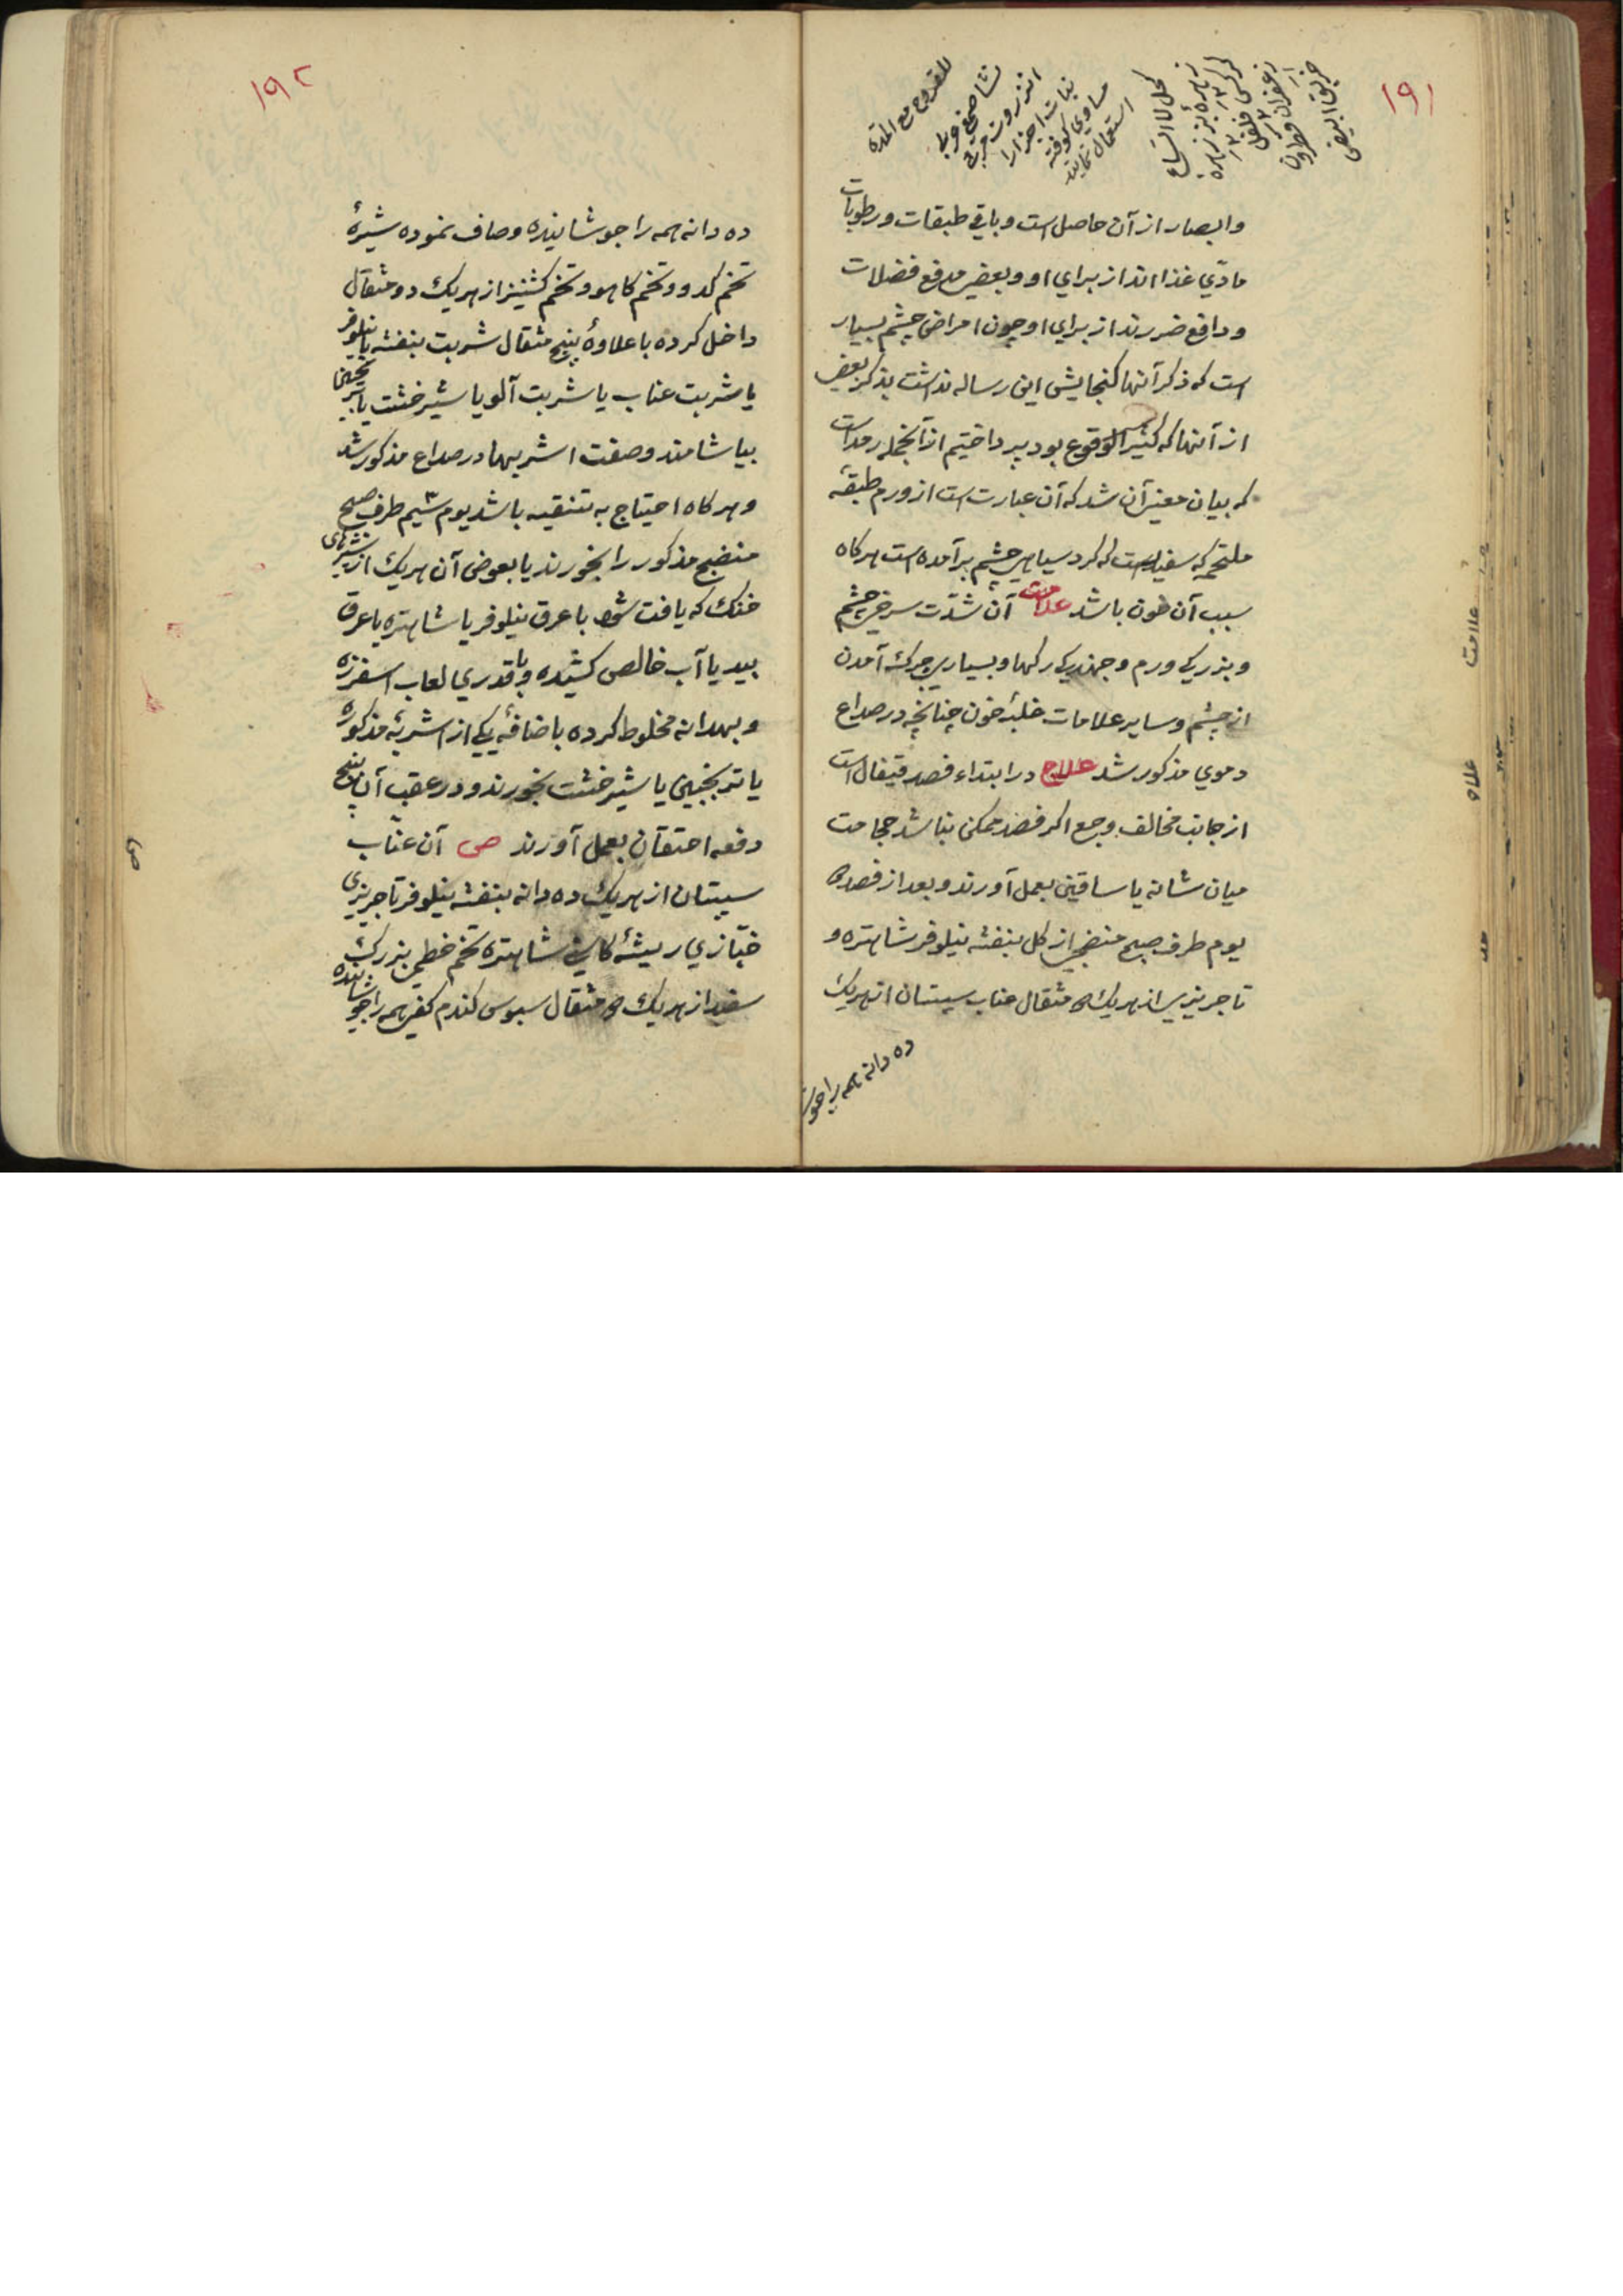 ۱۹۱
للقروح مع المده
نشا صمغ عربی
انزروت مربی
نبات اجزا را
مساوی کوفته
استعمال نمایند
کحل الاتساع
زهرهٔ بز زهره
کرکس فلفل
زعفران
خربق ابیض
وابصار از آن حاصل است و باقی طبقات و رطوبات
مادّی غذااند از برای او و بعضی مدفع فضلات
و دافع ضررند از برای او چون امراض چشم بسیار
است که ذکر آنها کنجایش این رساله نداشت بذکر بعضی
از آنها که کثیر الوقوع بود پرداختیم از آنجمله رمد است
که بیان معنی آن شد که آن عبارت است از ورم طبقهٔ
ملتحمه که سفیدیست که کرد سیاهی چشم برآمده است هرکاه
سبب آن خون باشد علامت آن شدّت سرخی چشم
و بزرکی ورم و جهندکی رکها و بسیاری چرک آمدن
از چشم و سایر علامات غلبهٔ خون چنانچه در صداع
دموی مذکور شد علاج در ابتداء فصد قیفال است
از جانب مخالف وجع اکر فصد ممکن نباشد حجامت
میان شانه یا ساقین بعمل آورند و بعد از فصد
یوم طرف صبح منضجی از کل بنفشه نیلوفر شاهتره و
تاجریزی از هریک مثقال عناب سپستان از هریک
ده دانه همه را جوشا
علامت
۱۹۲
ده دانه همه را جوشانیده و صاف نموده شیرهٔ
تخم کدو و تخم کاهو و تخم کشنیز از هریک دو مثقال
داخل کرده با علاوهٔ پنج مثقال شربت بنفشه یا نیلوفر
یا شربت عناب یا شربت آلو یا شیرخشت یا ترنجبین
بیاشامند و صفت اشربها در صداع مذکور شد
و هرکاه احتیاج به تنقیه باشد یوم سیم طرف صبح
منضج مذکور را بخورند یا بعوض آن هریک از شیرهای
خنک که یافت شود با عرق نیلوفر یا شاهتره یا عرق
بید یا آب خالص کشیده و با قدری لعاب اسفرزه
و بهدانه مخلوط کرده باضافهٔ یکی از اشربهٔ مذکوره
یا ترنجبین یا شیرخشت بخورند و در عقب آن پنج
دفعه احتقان بعمل آورند ص آن عنّاب
سپستان از هریک ده دانه بنفشه نیلوفر تاجریزی
خبّازی ریشهٔ کاسنی شاهتره تخم خطمی بزرک
سفید از هریک مثقال سبوس کندم کفی همه را جوشانیده